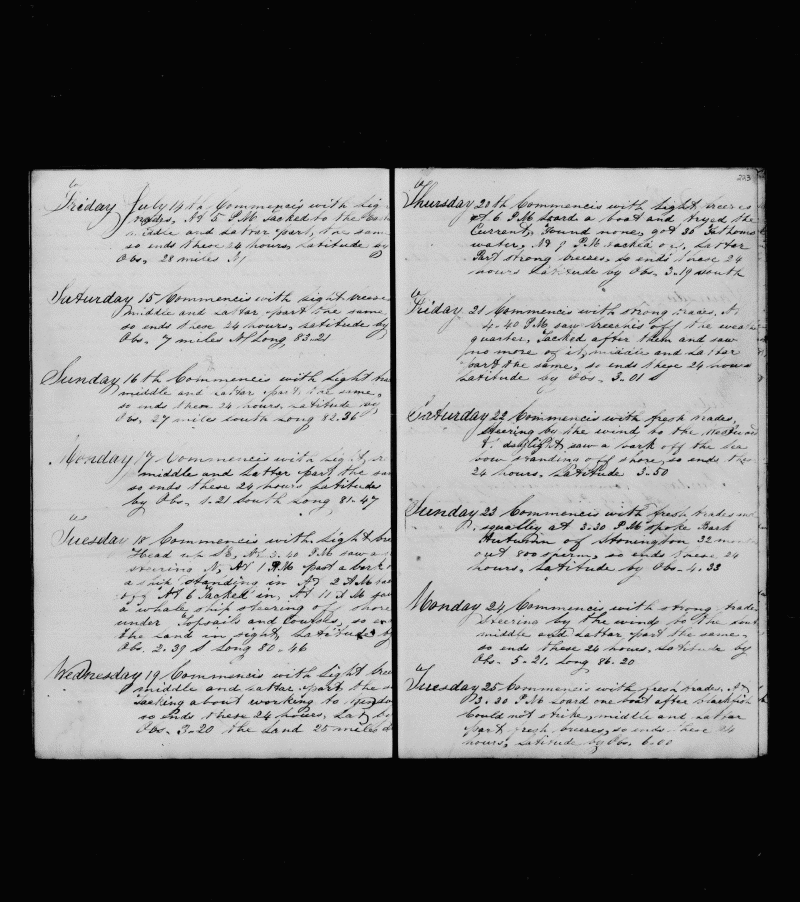 Friday July 14th Commencis with lig
trades, At 5 P.M tacked to the
middle and lattar part, the same
so ends these 24 hours, Latitude by
Obs. 28 miles N
Saturday 15 Commencis with light breese
middle and lattar part the same
so ends these 24 hours, Latitude by
Obs. 7 miles N Long 83-21
Sunday 16th Commencis with light tra
middle and lattar part. the same,
so ends them 24 hours, Latitude by
Obs, 27 miles south Long 82.36
Monday 17 Commencis with light
middle and lattar part the sa
so ends these 24 hours Latitude
by Obs. 1-21 South Long 81-47
Tuesday 18 Commencis with light bre
Head up SE, At 2.40 P.M saw a
steering N, At 1 P.M past a bark
a ship standing in At 2 A.M tac
off At 6 Tacked in, At 11 A M saw
a whale ship steering off shore
under Topsails and Courses, so en
the Land in sight, Latitude by
Obs. 2.39 S Long 80-46
Wednesday 19 Commencis with light bree
middle and lattar part, the s
Tacking about working to
so ends these 24 hours, Lat by
Obs. 3-20 the Land 25 miles d
203
Thursday 20th Commencis with light breeses
At 6 P.M Loard a boat and tryed the
Current, Found none, got 36 Fathoms
water, At P.M tacked off, Lattar
Part strong breezes, so ends these 24
hours Latitude by Obs. 3-19 south
Friday 21 Commencis with strong trades, At
4-40 P.M saw breechis off the weather
quarter, Tacked after them and saw
no more of it, middle and lattar
part the same, so ends these 24 hours
Latitude by Obs. 3-01 S
Saturday 22 Commencis with fresh trades,
steering by the wind to the
daylight saw a bark off the lea
bow standing off shore, so ends these
24 hours. Latitude 3-50
Sunday 23 Commencis with fresh trades and
squalley at 3-30 P.M spoke Bark
Autumn of Stonington 32 month
out 800 sperm, so ends these 24
hours, Latitude by Obs-4-33
Monday 24 Commencis with strong trade
Steering by the wind to the sout
middle and lattar part the same-
so ends these 24 hours, Latitude by
Obs. 5-21. Long 86-20
Tuesday 25 Commencis with fresh trades. At
3-20 P.M Loard one boat after blackfish
Could not strike, middle and lattar
part fresh breezes, so ends these 24
hours, Latitude by Obs. 6.00